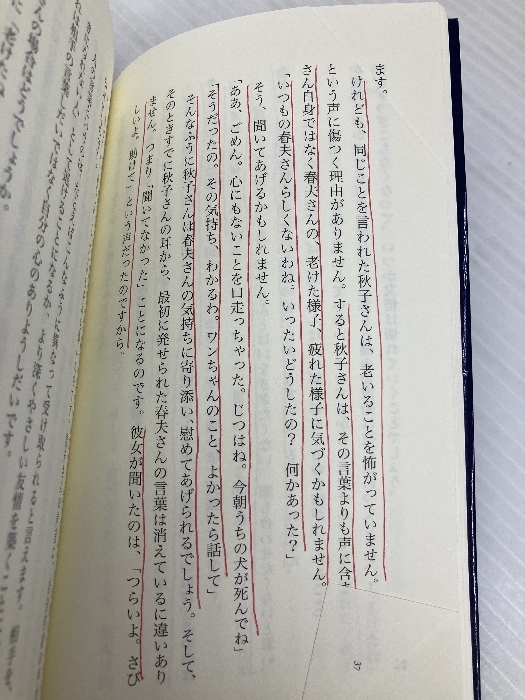 ます。
けれども、同じことを言われた秋子さんは、老いることを怖がっていません。
という声に傷つく理由がありません。すると秋子さんは、その言葉よりも声に含ま
さん自身ではなく春夫さんの、老けた様子、疲れた様子に気づくかもしれません。
「いつもの春夫さんらしくないわね。いったいどうしたの？　何かあった？」
そう、聞いてあげるかもしれません。
「ああ、ごめん。心にもないことを口走っちゃった。じつはね。今朝うちの犬が死んでね」
「そうだったの。その気持ち、わかるわ。ワンちゃんのこと、よかったら話して」
そんなふうに秋子さんは春夫さんの気持ちに寄り添い、慰めてあげられるでしょう。そして、
そのときすでに秋子さんの耳から、最初に発せられた春夫さんの言葉は消えているに違いあり
ません。つまり「聞いてなかった」ことになるのです。彼女が聞いたのは、「つらいよ。さび
しいよ。助けて」という声だったのですから。
37
って受け取られると言えます。相手を、
より深くやさしい友情を築くこと
自分の心のありようしだいです。
の場合はどうでしょうか。